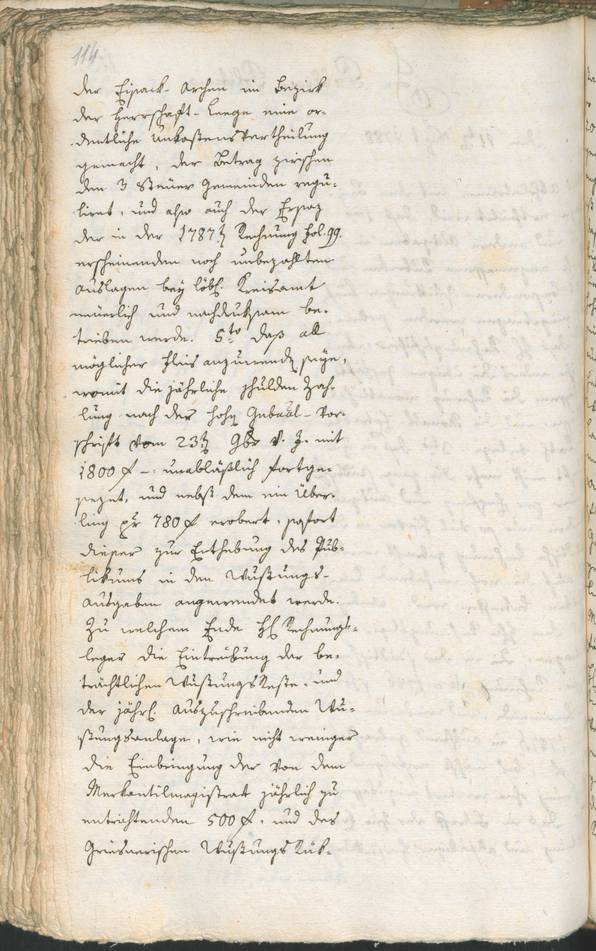 114.
der Eisack-Archen im Bezirk
der Herrschaft-Leege eine or-
dentliche Unkostensvertheilung
gemacht, der Betrag zwischen
den 3 Steuer Gemeinden regu-
liret, und also auch der Ersaz
der in der 1787er Rechnung Fol. 99.
erscheinenden noch unbezahlten
Auslagen bey löbl. Kreisamt
neuerlich und nachdruksam be-
trieben werde. 5to daß all
möglicher Fleis anzuwenden seye,
womit die jährliche Schulden Zah-
lung nach der hohen Gubaal-Vor-
schrift vom 23ten 9br v. J. mit
1800 f –, unabläßlich fortge-
sezet, und nebst dem ein Über-
ling pr 780 f erobert, sofort
dieser zur Enthebung des Pub-
likums in den Wustungs-
ausgaben angewendet werde.
Zu welchem Ende HH Rechnungs-
leger die Eintreibung der be-
trächtlichen Wustungs Reste, und
der jährl. auszuschreibenden Wu-
stungsanlage, wie nicht weniger
die Einbringung der von dem
Merkantilmagistrat jährlich zu
entrichtenden 500 f, und des
Griesnerischen Wustungs Rük-